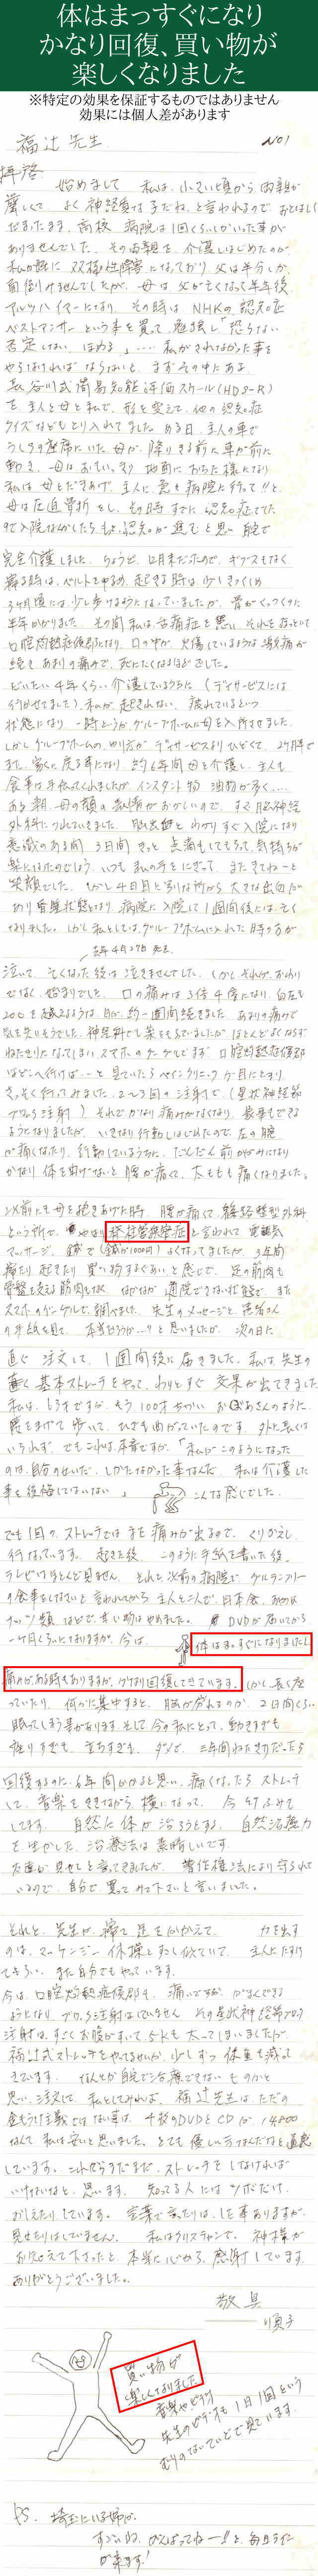 体はまっすぐになり
かなり回復、買い物が
楽しくなりました
※特定の効果を保証するものではありません
効果には個人差があります
No1
福辻先生
拝啓
始めまして 私は、小さい頃から、両親が
厳しくて、よく神経質な子だね、と言われるので、おとなしく
高校 病院は1回くらいしかいった事が
ありませんでした。その両親を、介護しはじめたのが
父は半分しか
母は父が亡くなって半年後
アルツハイマーになり、その時は NHKの認知症
ベストアンサーという事を買って、勉強し「怒らない
否定しない、ほめる」……私がされなかった事を
やらなければならないと、まずその中にある
長谷川式簡易知能評価スケール(HDS-R)
を主人と母と私で、形を変えて、他の認知症
クイズなどもとり入れてました。ある日、主人の車で
うしろの座席にいた母が、降りきる前に車が前に
動き、母は
私は母をだきあげ、主人に、急を病院に行って!!と、
母は圧迫骨折をし、その時すでに認知症でした
完全介護しました。ちょうど、12月末だったので、ギブスもなく
寝る時は、ベルトをゆるめ、起きる時は、少しきつくしめ
3ヶ月後には、少し歩けるようになっていましたが、骨がくっつくのに
半年かかりました。その間私は、舌痛症を患い、
口腔灼熱症候群になり、口の中が、火傷しているような激痛が
続き、あまりの痛みで、死にたくなるほどでした。
だいたい4年くらい介護しているうちに(デイサービスには
行かせてました)私が起きれない、疲れているという
状態になり、一時グループホームに母を入所させました。
しかしグループホームの、やり方がデイサービスよりひどくて、
また、家に戻る事になり 約6年間母を介護し、主人も
食事は手伝ってくれましたが、インスタント物 油物が多く…
ある朝、母の顔の表情がおかしいので、すぐ脳神経
外科につれていきました。脳出血とわかりすぐ入院になり
意識のある間 3日間
いつも私の手をにぎって、またきてねーと
笑顔でした。しかし4日目と
病院に入院して1週間後には、亡く
なりました。しかし私としては、グループホームに入れた時の方が
去年4月27日 死去
泣いて、亡くなった後は泣きませんでした。
始まりでした。口の痛みは3倍4倍になり、
200を越えるような、約一週間続きました。あまりの痛みで
気を失いそうでした。神経科でも薬をもらっていましたが、ほとんどよくならず
ねたきりになってしまい スマホのグーグルでまず 口腔灼熱症候群
はどこへ行けば…と、見ていたらペインクリニックが目にとまり
さっそく行ってみました。2〜3回の注射で、(星状神経節
ブロック注射) それでかなり痛みがなくなり、食事もできる
ようになりましたが、いきなり行動しはじめたので、左の腕
が痛くなったり、行動しているうちに、だんだん前かがみになり
かなり体を曲げないと腰が痛くて、太ももも痛くなりました。
以前にも母を抱きあげた時、腰が痛くて、整形外科
という所で、やはり脊柱管狭窄症と言われて、電気
マッサージ、鍼で(鍼が1000円)よくなってましたが、3年間
寝たり起きたり 買い物するぐあいと感じで、足の筋肉も
骨盤を支える筋肉もなく、なかなか通院できない状態で、また
スマホのグーグルで調べました。先生のメッセージと、患者さん
の手紙を見て、本当だろうか…?と思いましたが、次の日に
直ぐ注文して、1週間後に届きました。私は、先生の
書く基本ストレッチをやって、わりとすぐ効果が出てきました
私は、もう100才ちかいおばあさんのように、
腰をまげて歩いて、ひざも曲がっていたのです。外に長くは
いられず、でもこれは、本音ですが、「私がこのようになった
のは、自分のせいだ、しかたなかった事なんだ、私は介護した
事を後悔してはいない」 こんな感じでした。
でも1回の、ストレッチではまだ痛みが出るので、くりかえし
行なっています。起きた後、このように手紙を書いた後、
テレビはほとんど見ません。それと以前の病院で、グルテンフリー
の食事をしなさいと言われたから、主人と二人で日本食、
ナッツ類などで、甘い物はやめました。DVDが届いてから
一ヶ月くらいになりますが、今は、体はまっすぐになりました!
痛みがある時もありますが、かなり回復してきています。しかし長く座
っていたり、何かに集中すると、脳が疲れるのか、2日間くらい
眠ってしまう事があります。そして今の私にとって、動きすぎも
座りすぎも、立ちすぎも、ダメで、三年間ねたきりだったら
回復するのに、6年間かかると思い、痛くなったら ストレッチ
して、音楽をききながら、横になって、今
してます。自然に体が治ろうとする、自然治癒力
を生かした、治療法は素晴しいです。
見せてと言ってきましたが、著作権法により守られて
いるので、自分で、買ってみて下さいと言いました。
それと、先生が、寝て足を 力を出す
のは、マッケンジー体操と少し似ていて、主人にたすけて
もらい、また自分でもやっています。
今は、口腔灼熱症候群も、痛いですが、がまんできる
ようになり、ブロック注射はしていません。その星状神経節ブロック
注射は、すごくお腹がすいて、5Kも太ってしまいましたが、
福辻式ストレッチをやってるせいか、少しずつ体重も減って
きています。なんとか自宅で治療できないものかと
思い、注文して、私としてみれば、福辻先生は、ただの
金もうけ主義ではない事は、4枚のDVDとCDが、14800
なんて私は安いと思いました。とても優しい方なんだなと直感
しています。これからまだまだ、ストレッチをしなければ
いけないなと、思います。知ってる人にはツボだけ、
おしえたりしています。言葉で言ったりは、した事ありますが、
見せたりはしていません。私はクリスチャンで、神様が
お与えて下さったと、本当に心から、感謝しています。
ありがとうございました。
敬具
順子
買い物が
楽しくなりました
音楽や、ピラティ
先生のビデオも1日1回という
むりのないていどで見ています。
P.S. 埼玉にいる姉が、
すごいね、がんばってねー!!と、毎日ライン
が来ます!